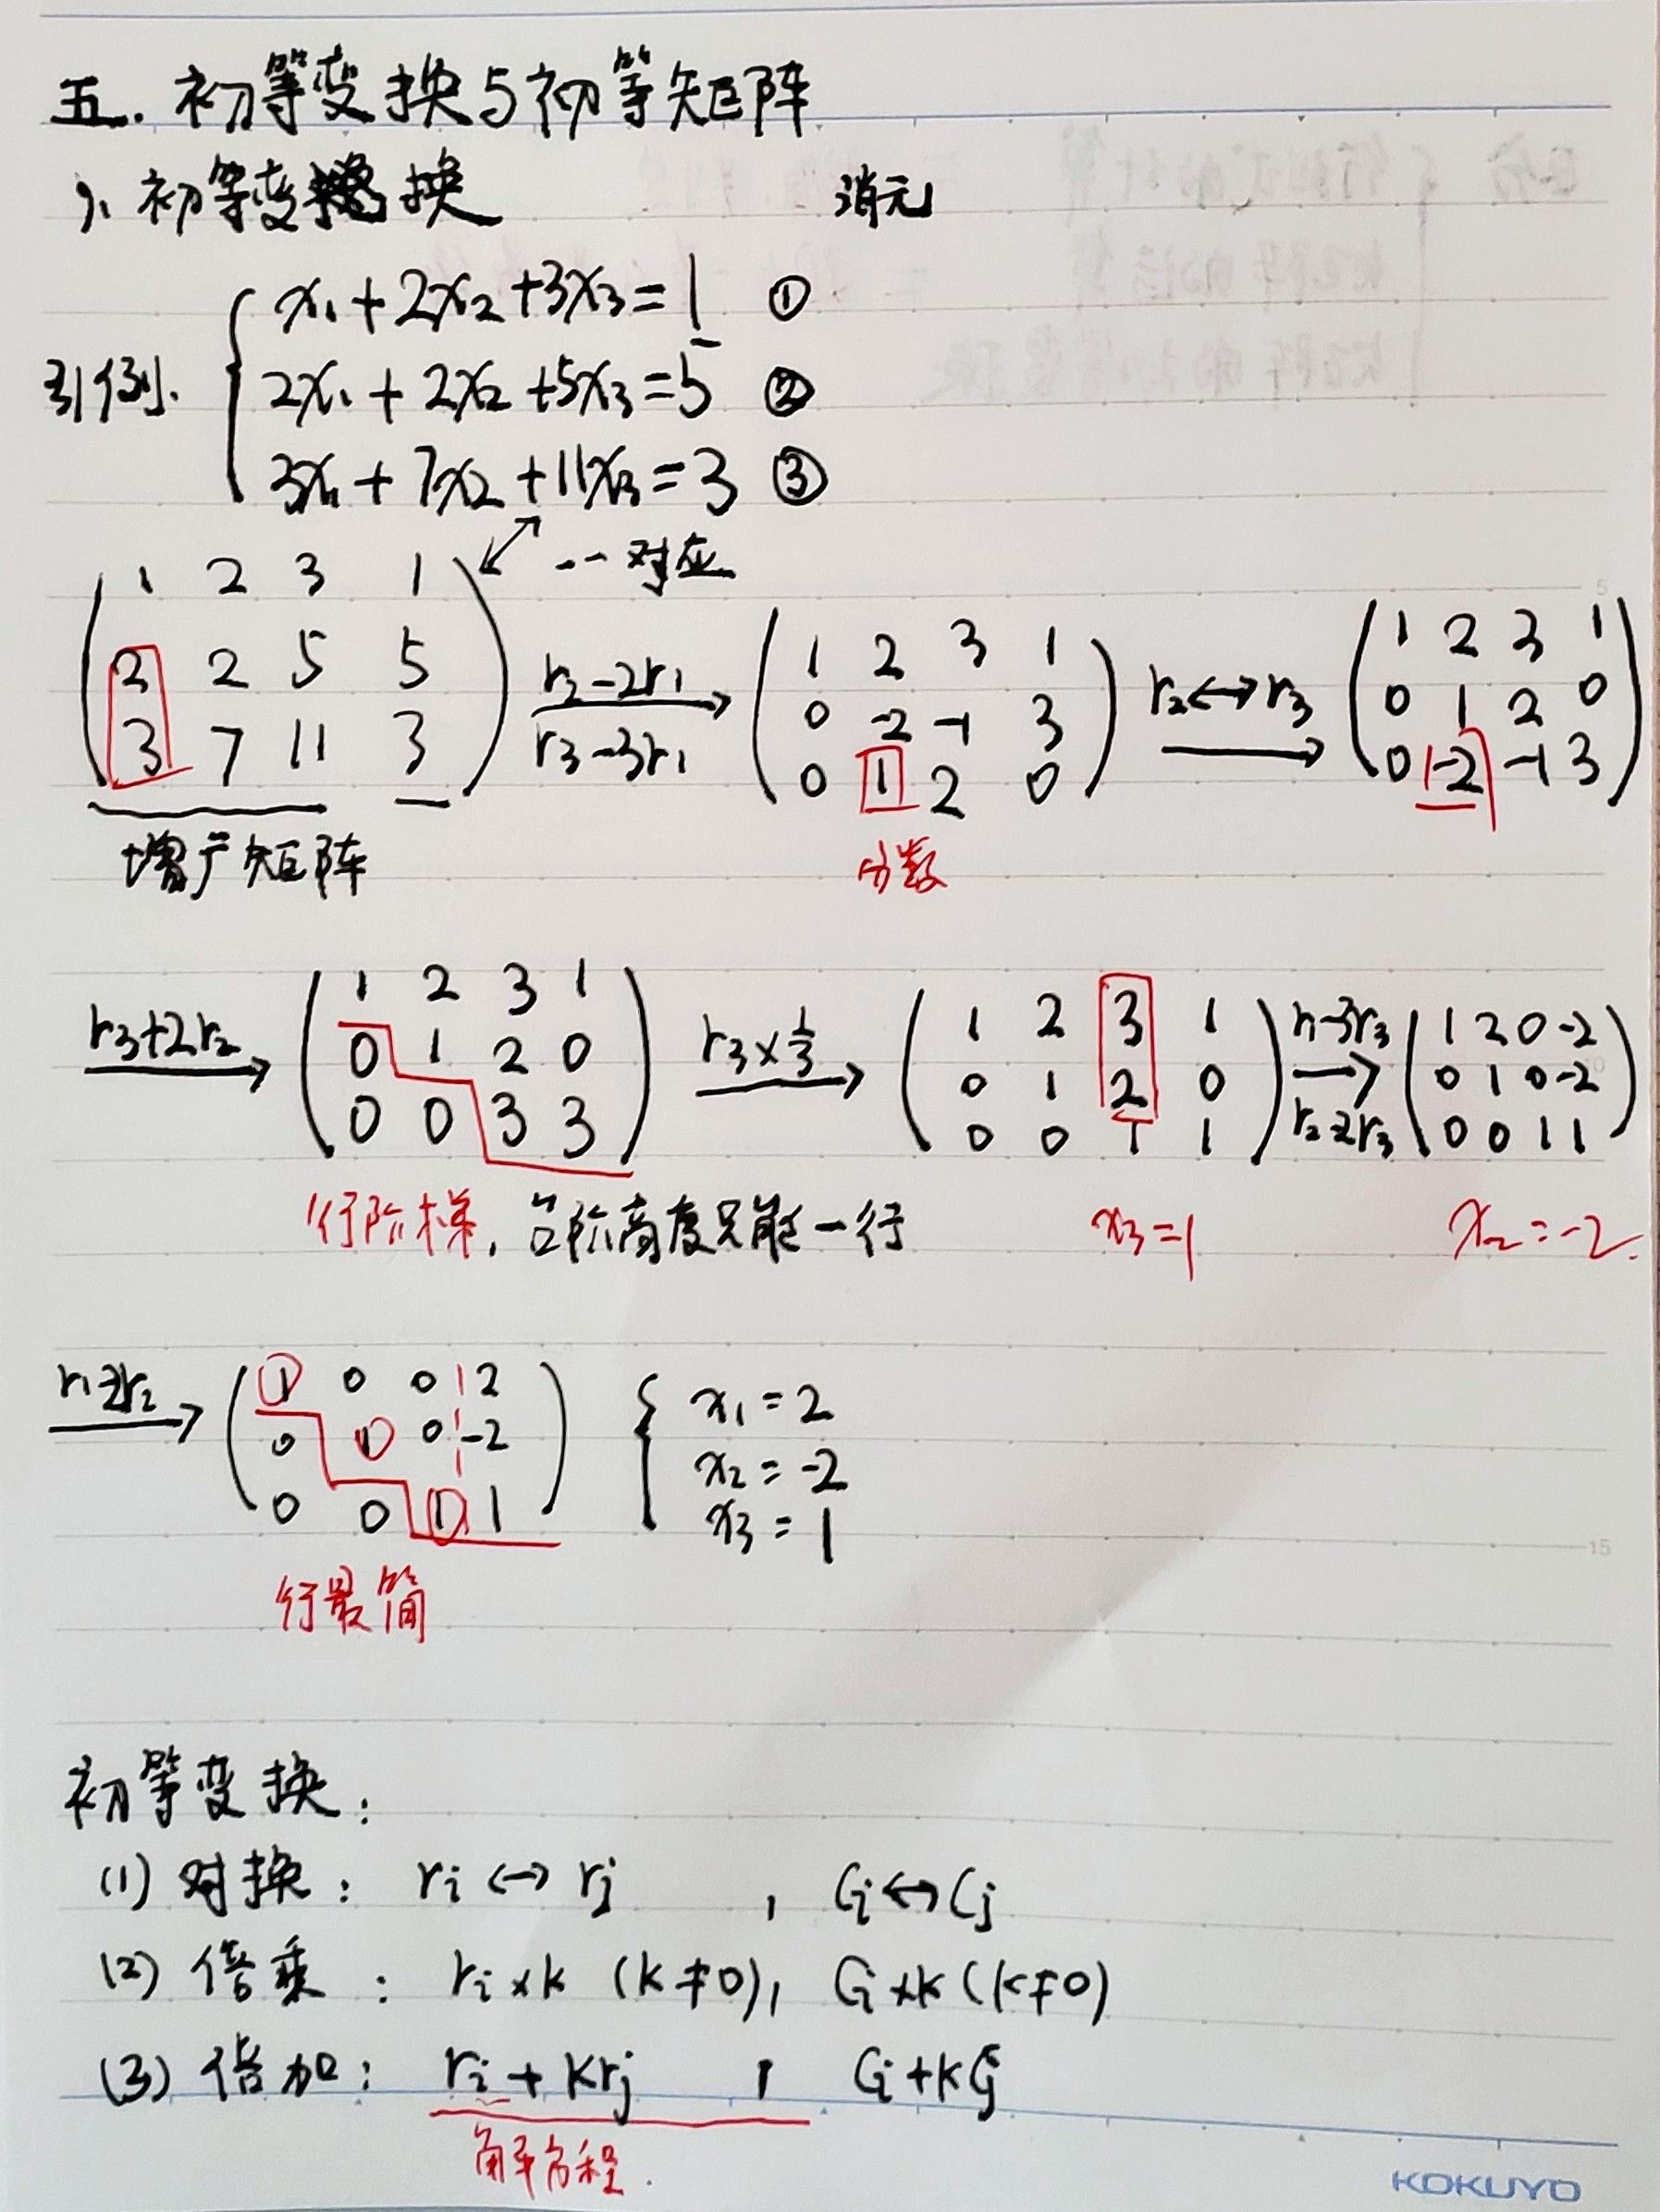 五. 初等变换与初等矩阵
1、初等变换 消元
引例. { x₁+2x₂+3x₃=1 ①
2x₁+2x₂+5x₃=5 ②
3x₁+7x₂+11x₃=3 ③
↙↗ 一一对应
( 1 2 3 1
2 2 5 5
3 7 11 3 )
r₂-2r₁
r₃-3r₁ →
( 1 2 3 1
0 -2 -1 3
0 1 2 0 )
r₂↔r₃ →
( 1 2 3 1
0 1 2 0
0 -2 -1 3 )
增广矩阵 分数
r₃+2r₂ →
( 1 2 3 1
0 1 2 0
0 0 3 3 )
r₃×1/3 →
( 1 2 3 1
0 1 2 0
0 0 1 1 )
r₁-3r₃ →
r₂-2r₃
( 1 2 0 -2
0 1 0 -2
0 0 1 1 )
行阶梯, 台阶高度只能一行 x₃=1 x₂=-2.
r₁-2r₂ →
( 1 0 0 2
0 1 0 -2
0 0 1 1 )
{ x₁=2
x₂=-2
x₃=1
行最简
初等变换:
(1) 对换: rᵢ↔rⱼ , Cᵢ↔Cⱼ
(2) 倍乘: rᵢ×k (k≠0), Cᵢ×k (k≠0)
(3) 倍加: rᵢ+krⱼ , Cᵢ+kCⱼ
解方程.
KOKUYO